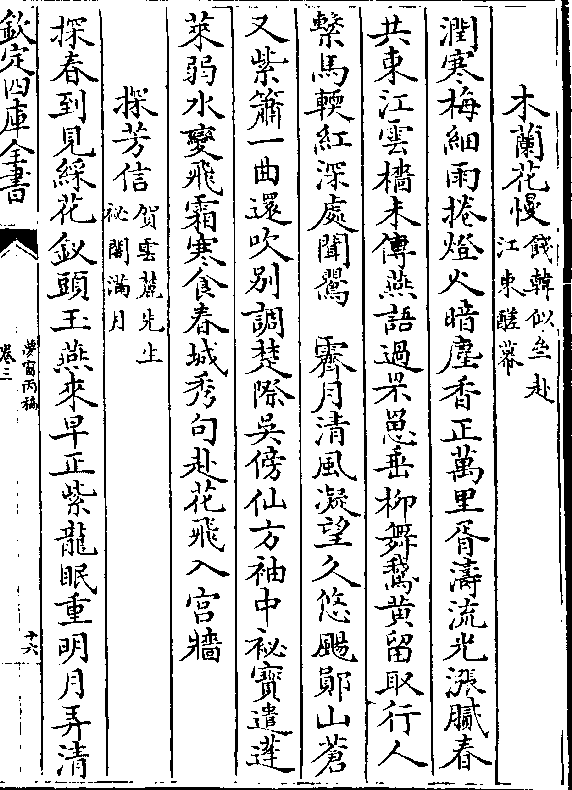 木蘭花慢餞韓似坐赴
江東醝幕
潤寒梅細雨捲燈火暗塵香正萬里胥濤流光漲膩春
共東江雲檣未傳燕語過罘罳垂柳舞鵞黄留取行人
繫馬輭紅深處聞鶯　霽月清風凝望久悠颺鄖山蒼
又紫簫一曲還吹别調楚際吳傍仙方袖中祕寳遣蓬
萊弱水變飛霜寒食春城秀句赴花飛入宫牆
探芳信賀雲麓先生
祕閣滿月
探春到見綵花釵頭玉燕來早正紫龍眠重明月弄清
欽定四庫全書
夢窗丙稿
卷三
十六